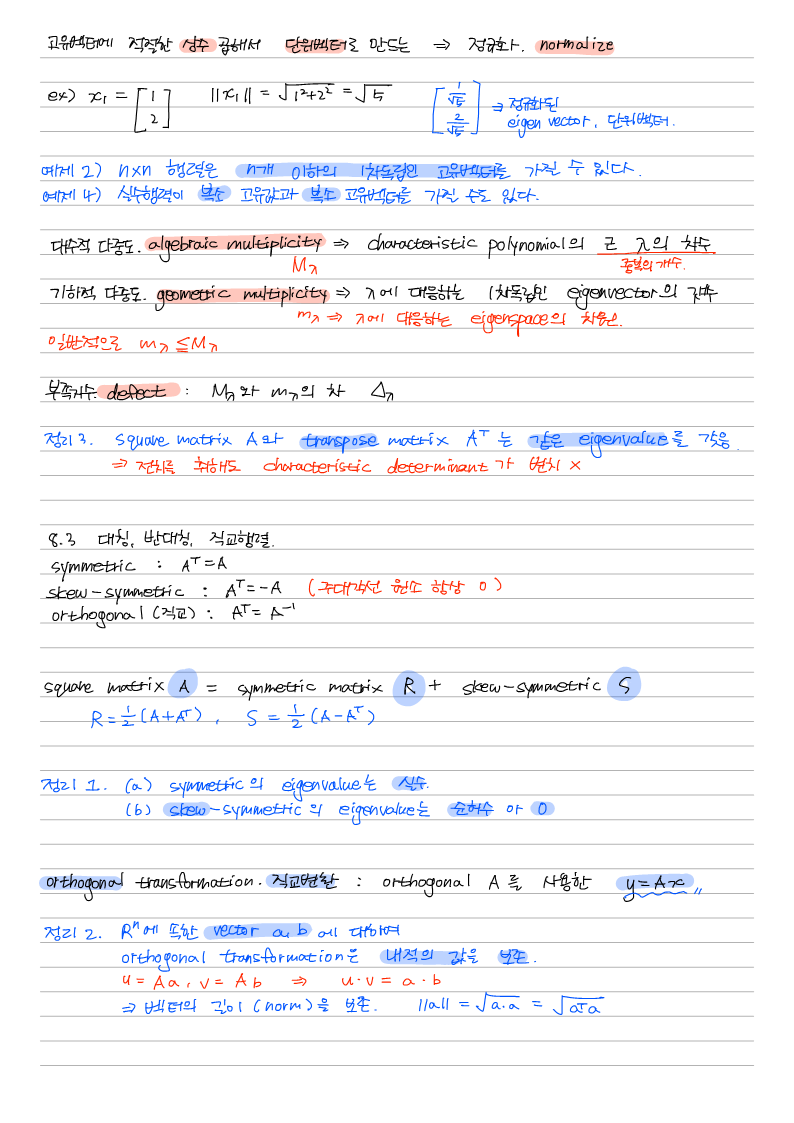 고유벡터에 적절한 상수 곱해서 단위벡터로 만드는 ⇒ 정규화. normalize
ex) x₁ = [1 2] ||x₁|| = √(1²+2²) = √5 [1/√5 2/√5] ⇒ 정규화된
eigen vector, 단위벡터.
예제 2) n×n 행렬은 n개 이하의 1차독립인 고유벡터를 가질 수 있다.
예제 4) 실수행렬이 복소 고유값과 복소 고유벡터를 가질 수도 있다.
대수적 다중도. algebraic multiplicity ⇒ characteristic polynomial의 근 λ의 차수
M_λ 중복의 개수.
기하적 다중도. geometric multiplicity ⇒ λ에 대응하는 1차독립인 eigenvector의 개수
m_λ ⇒ λ에 대응하는 eigenspace의 차원.
일반적으로 m_λ ≦ M_λ
부족지수. defect : M_λ와 m_λ의 차 Δ_λ
정리 3. square matrix A와 transpose matrix Aᵀ는 같은 eigenvalue를 갖음.
⇒ 전치를 취해도 characteristic determinant가 변치 ×
8.3 대칭, 반대칭, 직교행렬.
symmetric : Aᵀ=A
skew-symmetric : Aᵀ=-A (주대각선 원소 항상 0)
orthogonal (직교) : Aᵀ= A⁻¹
square matrix A = symmetric matrix R + skew-symmetric S
R = ½(A+Aᵀ), S = ½(A-Aᵀ)
정리 1. (a) symmetric의 eigenvalue는 실수.
(b) skew-symmetric의 eigenvalue는 순허수 or 0
orthogonal transformation. 직교변환 : orthogonal A를 사용한 y=Ax 〃
정리 2. Rⁿ에 속한 vector a, b에 대하여
orthogonal transformation은 내적의 값을 보존.
u = Aa, v = Ab ⇒ u·v = a·b
⇒ 벡터의 길이 (norm)을 보존. ||a|| = √(a·a) = √(aᵀa)